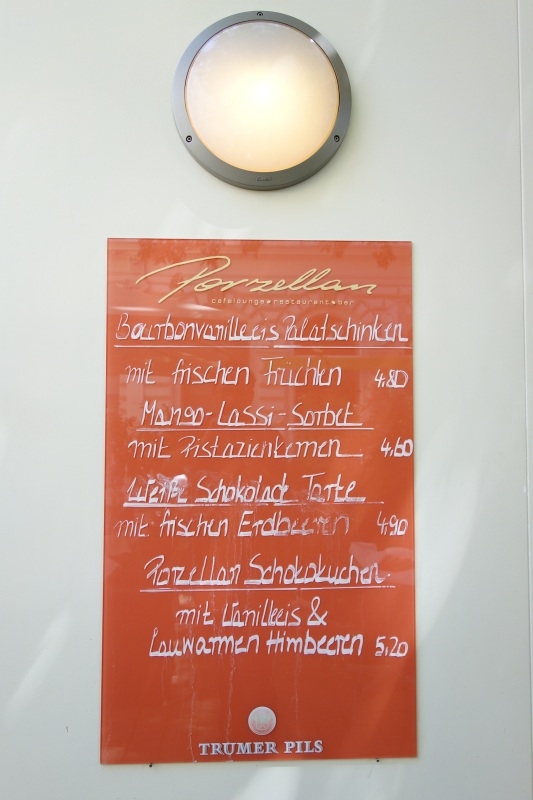 Porzellan
cafélounge•restaurant•bar
Bourbonvanilleeis Palatschinken
mit frischen Früchten 4,80
Mango-Lassi-Sorbet
mit Pistazienkernen 4,60
Weiße Schokolade Torte
mit frischen Erdbeeren 4,90
Porzellan Schokokuchen
mit Vanilleeis &
Lauwarmen Himbeeren 5,20
TRUMER PILS